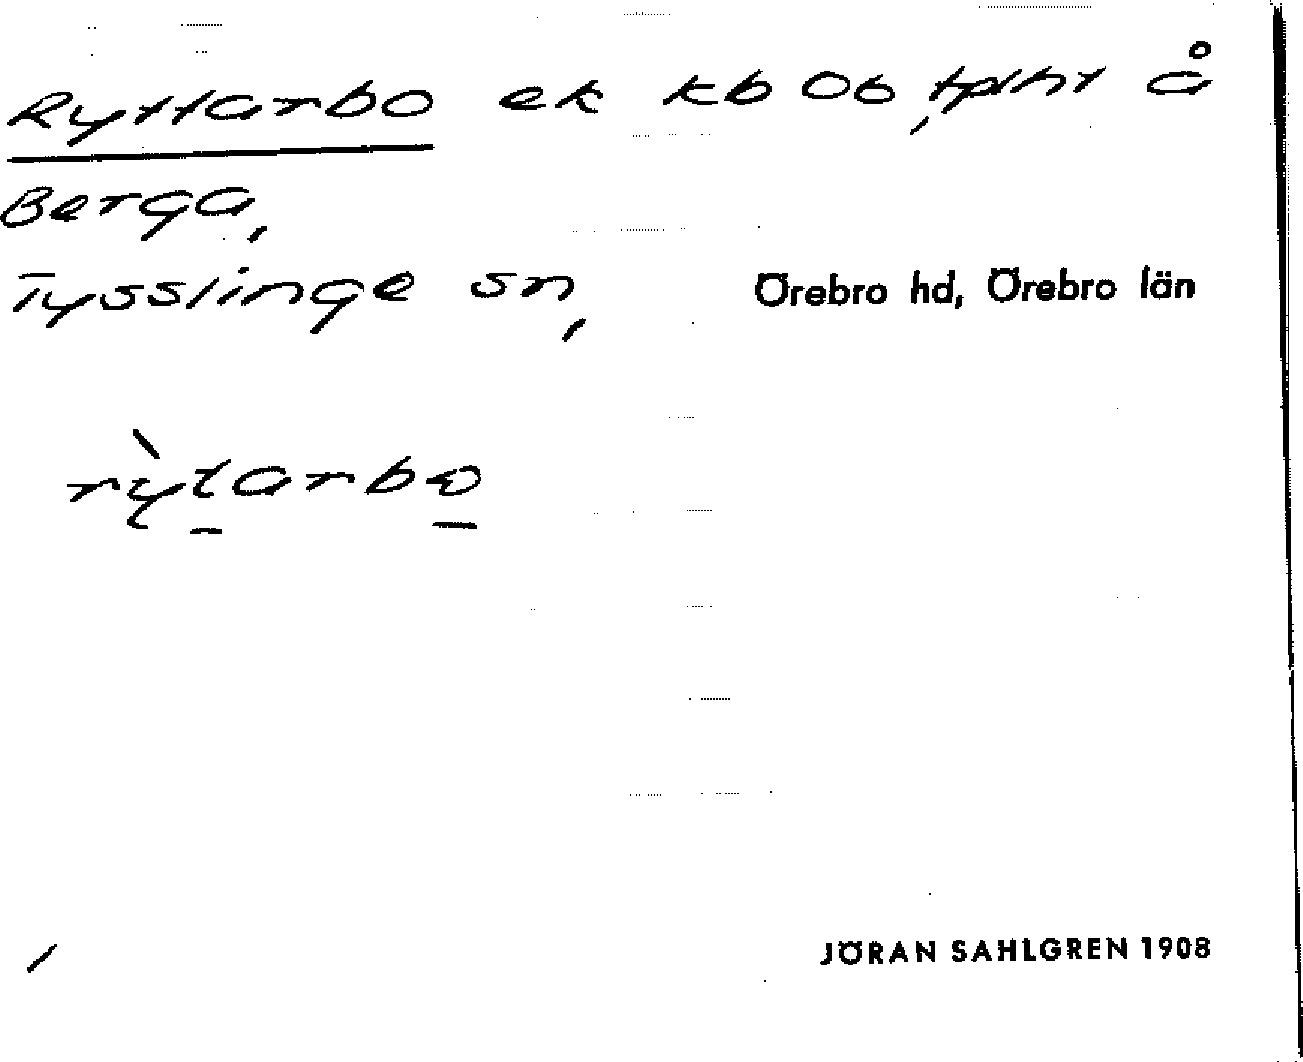 Ryttarbo ek kb Ob, tplht å
Berga,
Tysslinge sn, Örebro hd, Örebro län
rỳtarbo
JÖRAN SAHLGREN 1908